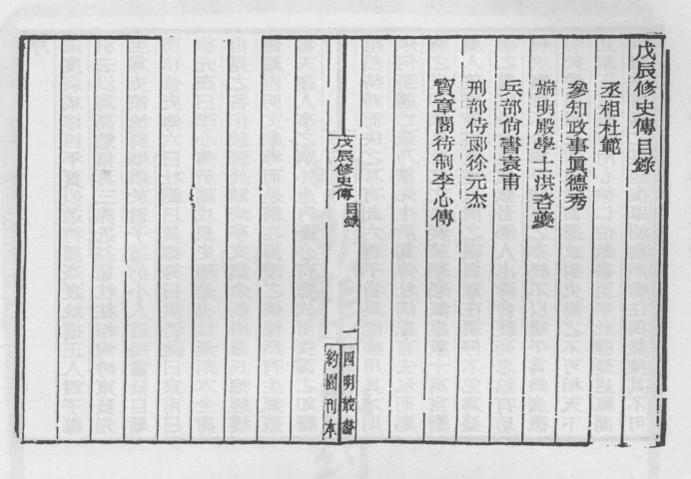 戊辰修史傳目錄
丞相杜範
參知政事眞德秀
端明殿學士洪咨夔
兵部尙書袁甫
刑部侍郞徐元杰
寶章閣待制李心傳
戊辰修史傳
目錄
一
四明叢書
約園刊本